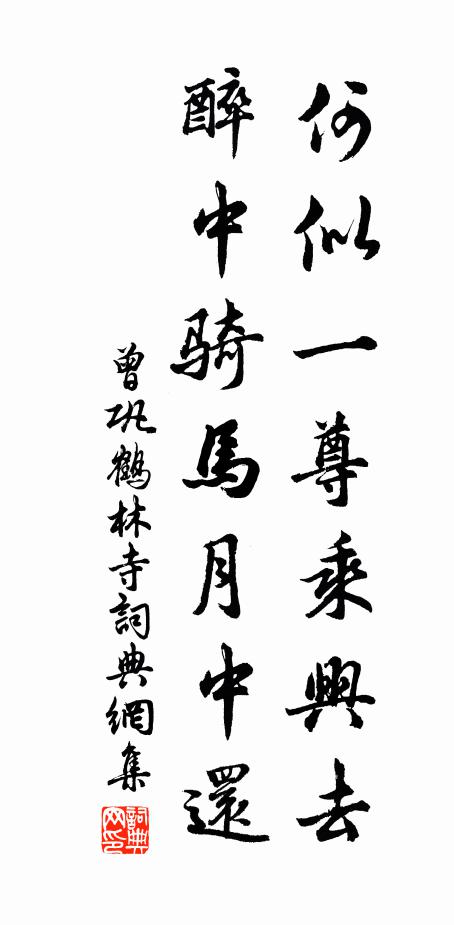 何似一尊乘興去
醉中騎馬月中還
曾巩鶴林寺詞典網集
詞典网印